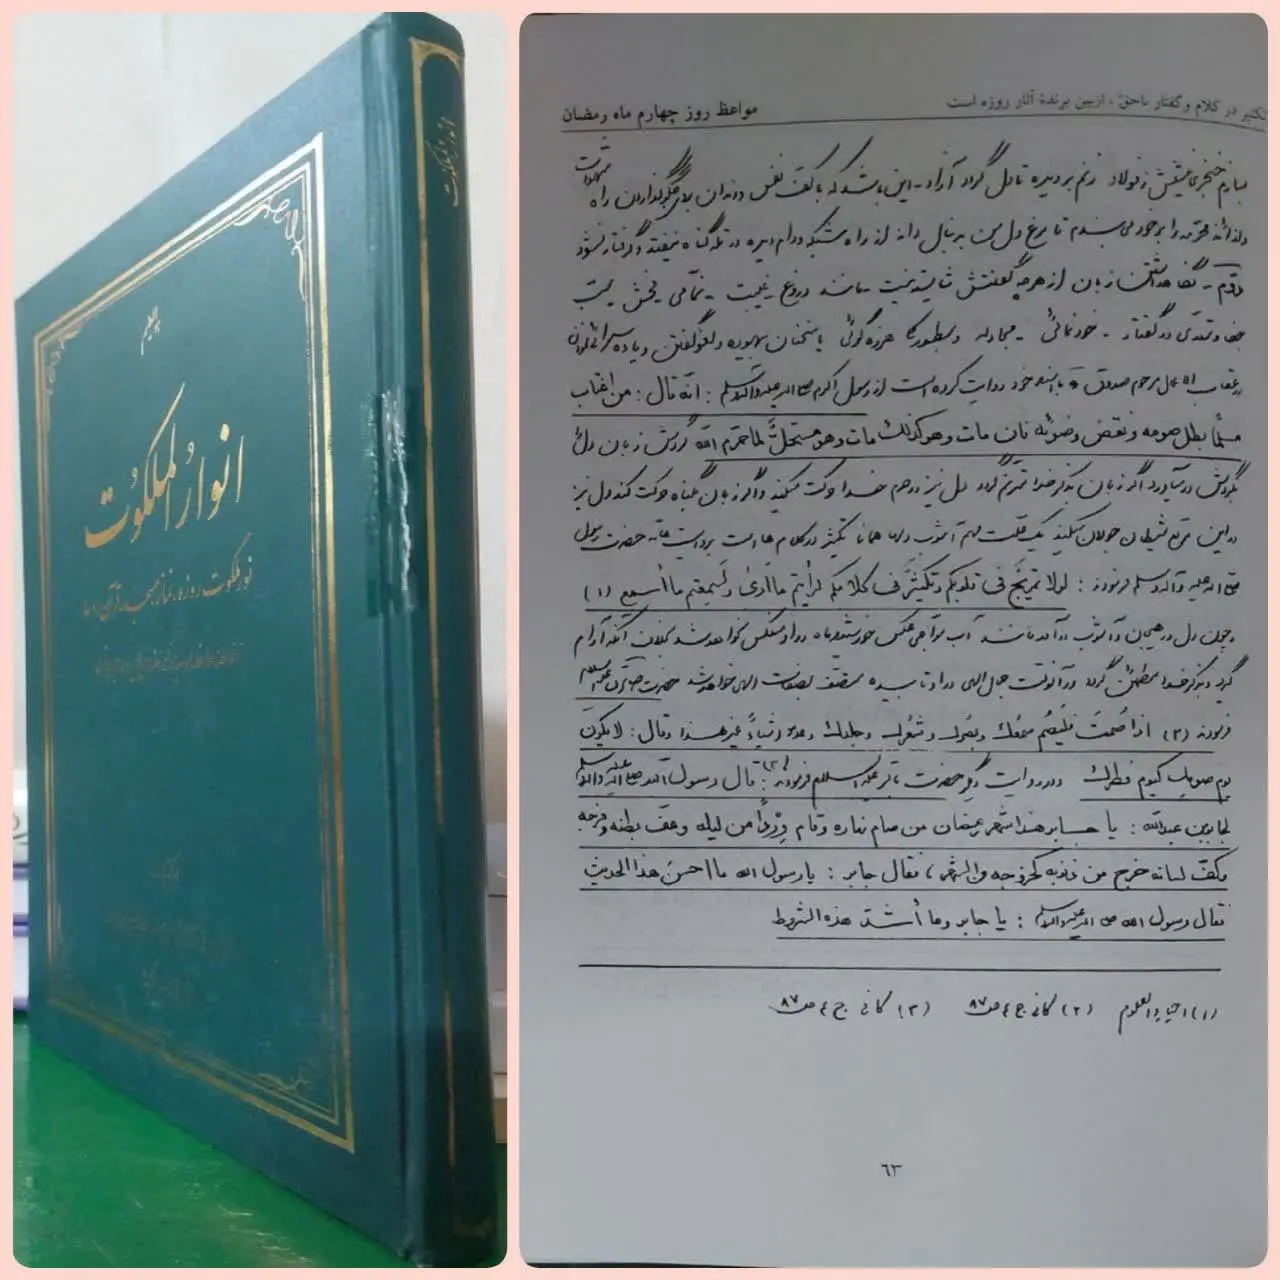 هو العلیم
انوارُ الملکوُت
نور ملکوت روزه، نماز، مسجد، قرآن، دعا
انوار الملکوت
تکثیر در کلام و گفتار ناحقّ، ازبین برندهٔ آثار روزه است
مواعظ روز چهارم ماه رمضان
بسازم خنجری نیشش ز فولاد زنم بر دیده تا دل گردد آزاد - این باشد که با کفّ نفس و دندان بر جگر گذاردن راه شهوات
و لذائذ محرّمه را بر خود می‌بندم تا مرغ دل من به دنبال دانه از راه شبکه و دام دیده در تله گناه نیفتد و گرفتار نشود
دوّم - نگاهداشتن زبان از هرچه گفتنش شایسته نیست - مانند دروغ - غیبت - نمّامی - فحش
جفا و تعدّی در گفتار - خودنمائی - مجادله و بطور کلّی هرزه گوئی یا سخنان بیهوده و لغو گفتن و یاوه سرائی نمودن
در عقاب الأعمال مرحوم صدوق با اسناد خود روایت کرده است از رسول اکرم صلی الله علیه و آله و سلم : أنّه قال : من اغتاب
مسلماً بطل صومه و نقض وضوئه فان مات و هو کذلک مات و هو مستحلٌّ لما حرّم الله گردش زبان دل را
بگردش در میآورد اگر زبان بذکر خدا مترنّم گردد دل نیز در حرم خدا حرکت میکند و اگر زبان بگناه حرکت کند دل نیز
در این مرتع شیطان جولان میکند یک علّت مهم آشوب دلها همانا تکثیر در کلام ها است بروایت عامّه حضرت رسول
صلی الله علیه و آله و سلم فرمودند : لولا تمریجٌ فی قلوبکم و تکثیرٌ فی کلامکم لرأیتم ما أری و لسمعتم ما أسمع (۱)
و چون دل در هیجان و آشوب در آمد مانند آب موّاجی عکس خورشید و ماه در او منعکس نخواهد شد بخلاف آنکه آرام
گیرد و بذکر خدا مطمئنّ گردد در آنوقت جمال الهی در او تابیده متّصف بصفات الهی خواهد شد حضرت صادق علیه السلام
فرمودند (۲) اذا صُمتَ فلیَصُم سمعُک و بصرُک و شَعْرُک و جلدُک و عدّد أشیاءَ غیرَ هذا و قال : لا یکونُ
یومُ صومِک کیومِ فطرک و در روایت دیگر حضرت باقر علیه السلام فرمودند (۳) : قال رسول الله صلی الله علیه و آله
لجابر بن عبدالله : یا جابر هذا شهر رمضان من صام نهاره و قام وِرْداً من لیله و عفّ بطنه و فرجه
و کفّ لسانه خرج من ذنوبه کخروجه من الشهر ، فقال جابر : یا رسول الله ما احسنَ هذا الحدیث
فقال رسول الله صلی الله علیه و آله و سلم : یا جابر و ما أشدّ هذه الشروط
(۱) احیاء العلوم (۲) کافی ج ٤ ص ۸۷ (۳) کافی ج ٤ ص ۸۷
٦٣